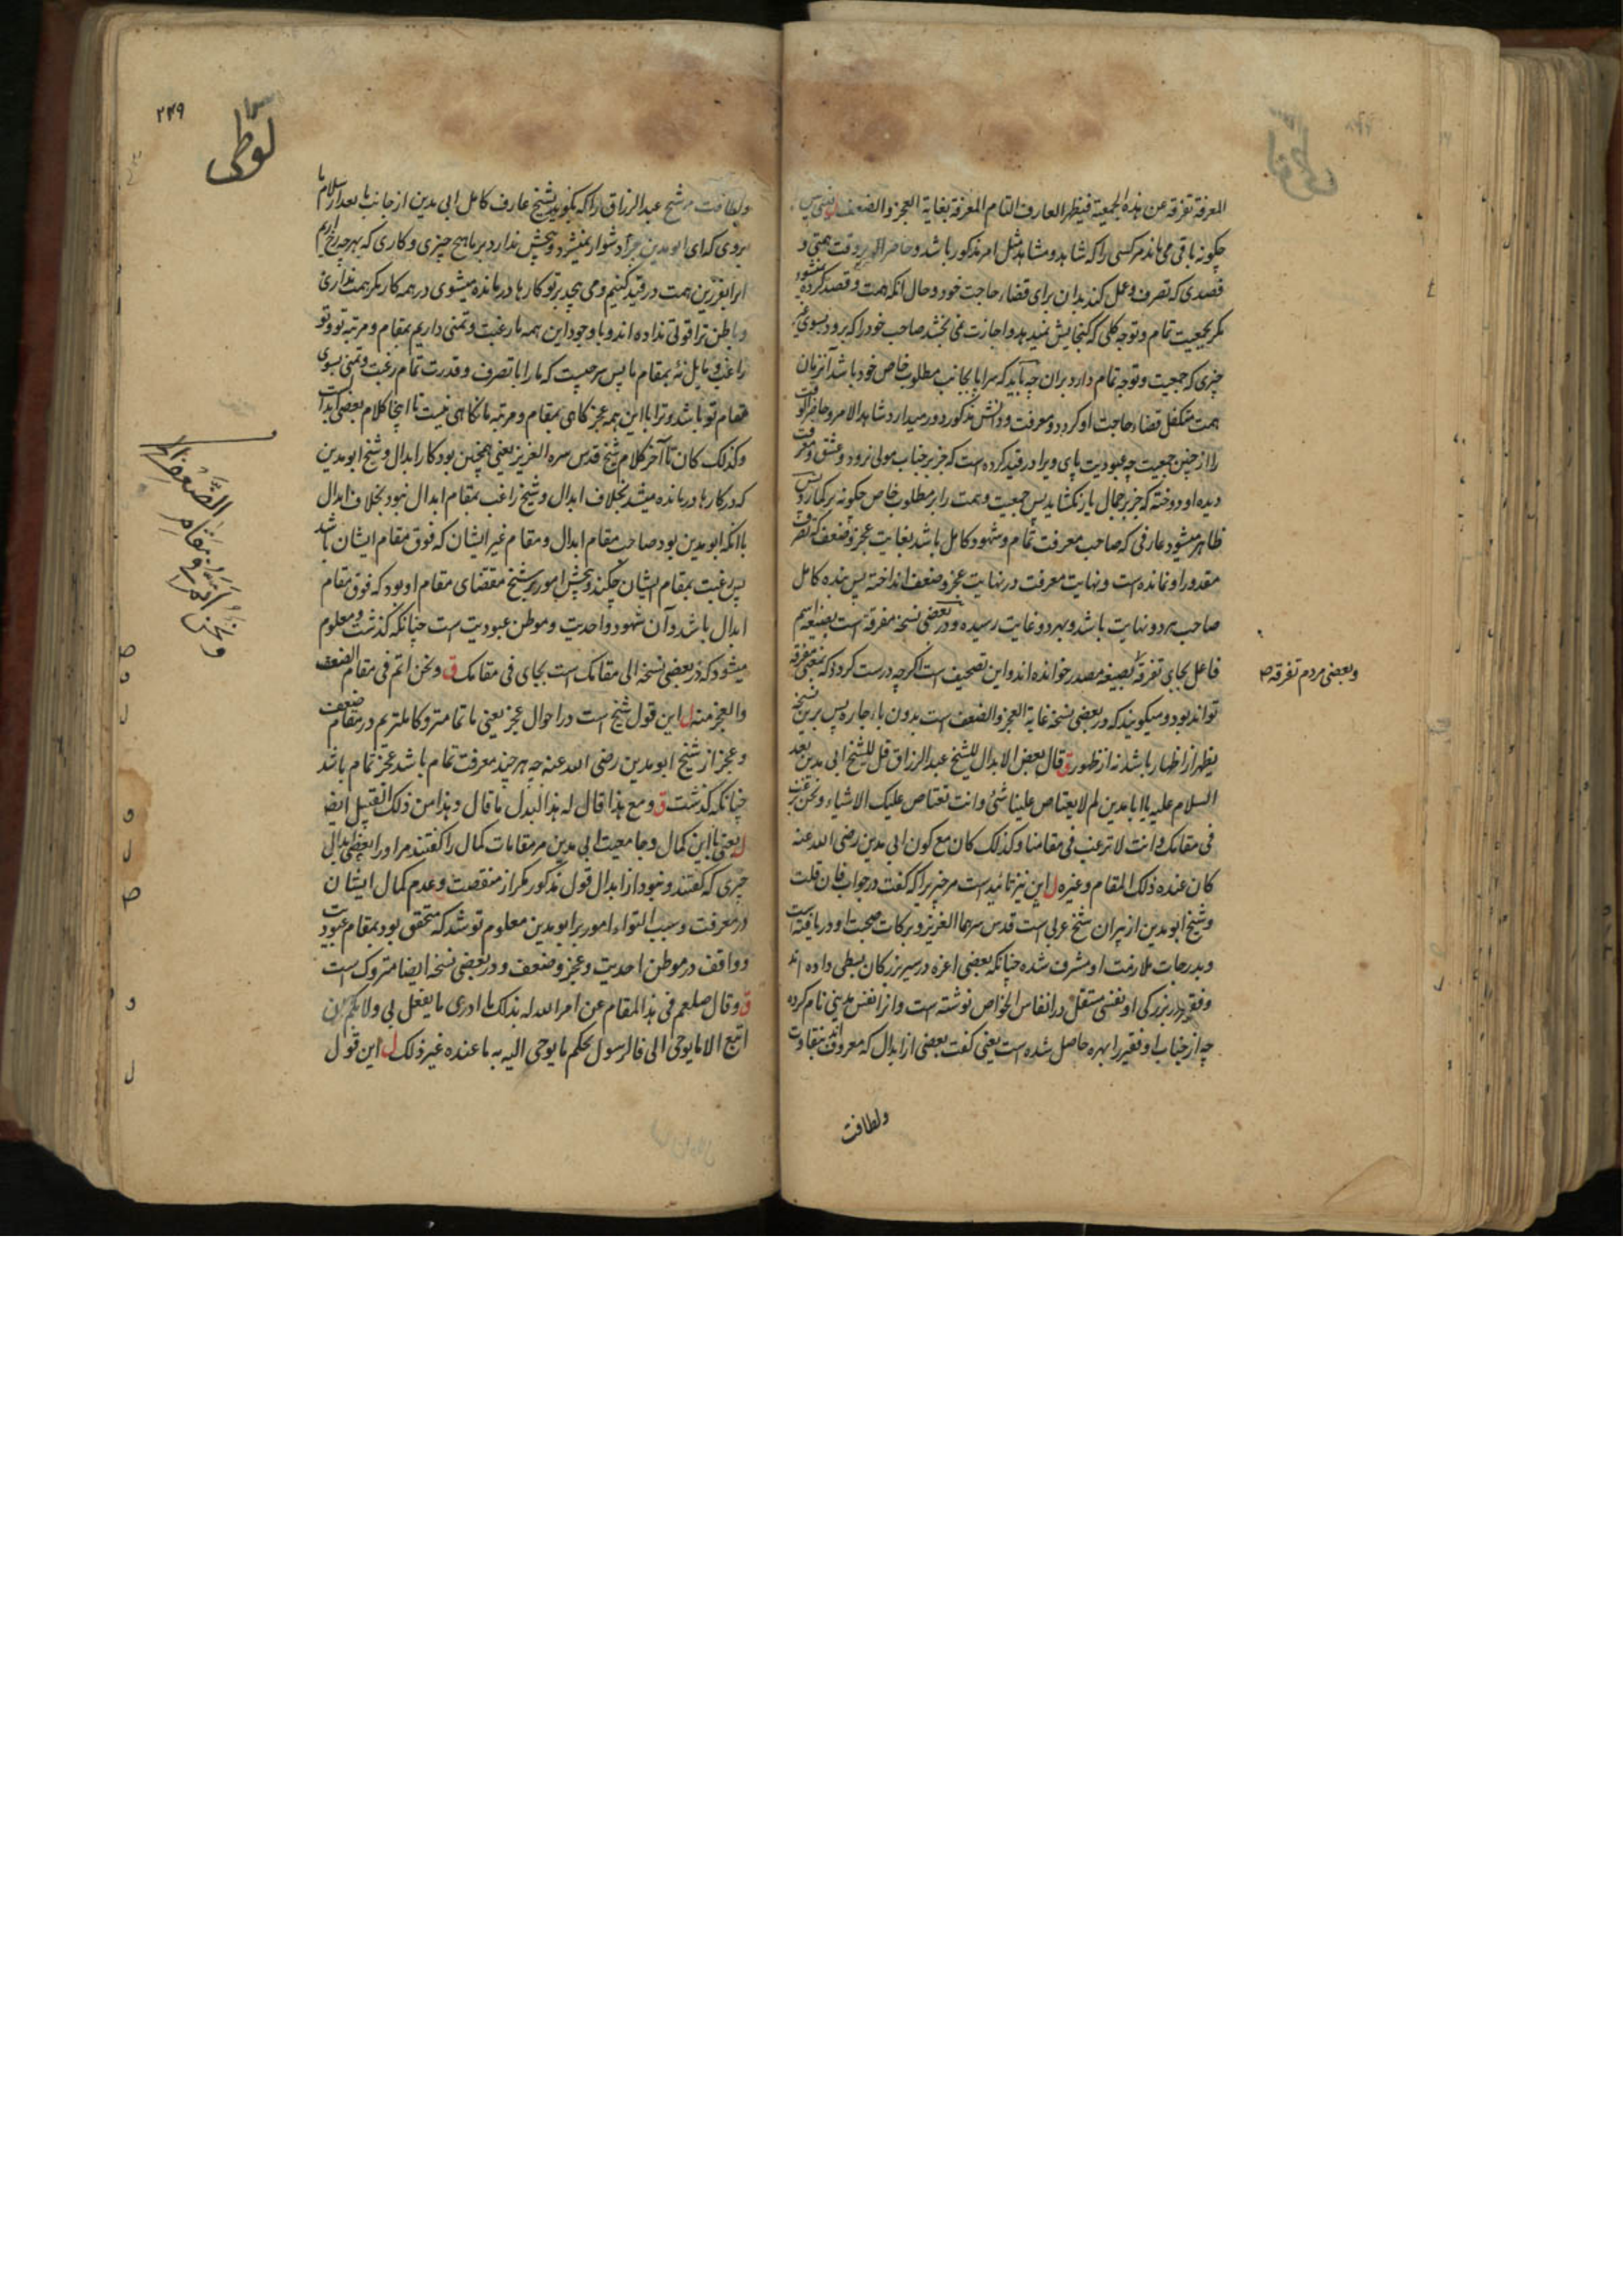 المعرفة تفرقه عن هذه الجمعية فيظهر العارف التام المعرفة بغاية العجز والضعف
چکونه باقی می ماند مر کسی را که شاهد و مشاهد مثل امر مذکور باشد و حاضر همتی و
قصدی که تصرف و عمل کند بدان برای قضاء حاجت خود و حال آنکه همت و قصد کرده
مکر بجمعیت تمام و توجه کلی که کنجایش نمیدهد و اجازت نمی بخشد صاحب خود را که برود بسوی
چیزی که جمعیت و توجه تمام دارد بران چه باید که سراپا بجانب مطلوب خاص خود باشد
همت متکفل قضاء حاجت او کردد و معرفت و دانش مذکور دور میدارد شاهد الامر و حاضر
را از چنین جمعیت چه عبودیت پای ویرا در قید کرده است که جز بر جناب مولی نرود و عشق و
دیده او دوخته که جز بر جمال یار نکشاید پس جمعیت و همت را بر مطلوب خاص چکونه بر کمارد
ظاهر میشود عارفی که صاحب معرفت تمام و شهود کامل باشد بغایت عجز و ضعف که
مقدور او نمانده است و نهایت معرفت در نهایت عجز و ضعف انداخته پس بنده کامل
صاحب هر دو نهایت باشد و بهر دو غایت رسیده و در بعضی نسخه مفرقة است بصیغه اسم
فاعل بجای تفرقه بصیغه مصدر خوانده اند و این تصحیف است اکرچه درست کردد که بمعنی مفرقه
تواند بود و میکویند که در بعضی نسخه غایة العجز والضعف است بدون باء جاره پس برین نسخه
یظهر از اظهار باشد نه از ظهور ق قال بعض الابدال للشیخ عبد الرزاق قل للشیخ ابی مدین بعد
السلام علیه یا ابا مدین لم لا یعتاص علینا شئ وانت تعتاص علیک الاشیاء ونحن نرغب
فی مقامک وانت لا ترغب فی مقامنا وکذلک کان مع کون ابی مدین رضی الله عنه
کان عنده ذلک المقام وغیره ل این نیز تائید است مر چیزیرا که کفت در جواب فان قلت
و شیخ ابو مدین از پیران شیخ عربی است قدس سرهما العزیز و برکات صحبت او دریافته است
و بدرجات ملازمت او مشرف شده چنانکه بعضی اعزه در سیر بزرکان بسطی داده اند
و فقیر در بزرکی او نفسی مستقل در انفاس الخواص نوشته است و انرا نفس مدینی نام کرده
چه از جناب او فقیر را بهره حاصل شده است یعنی کفت بعضی از ابدال که معروف اند بنقاوت
ولطافت
وبعضی مردم تفرقه
۲۴۹
لوطی
ولطافت مر شیخ عبد الرزاق را که بکوید بشیخ عارف کامل ابی مدین از جانب ما بعد از سلام ما
بروی که ای ابو مدین چرا دشوار نمیشود و پیچش ندارد بر ما هیچ چیزی و کاری که بهرچه رخ آریم
وباطن ترا قوتی نداده اند و با وجود این همه ما رغبت و تمنی داریم بمقام و مرتبه تو و تو
راغب و مایل نئ بمقام ما پس سر چیست که ما را با تصرف و قدرت تمام رغبت و تمنی بسوی
مقام تو باشد و ترا با این همه عجز کاهی بمقام و مرتبه ما نکاهی نیست تا اینجا کلام بعضی ابدال است
وکذلک کان تا آخر کلام شیخ قدس سره العزیز یعنی همچنین بود کار ابدال و شیخ ابو مدین
که در کارها درمانده میشد بخلاف ابدال و شیخ راغب بمقام ابدال نبود بخلاف ابدال
با آنکه ابو مدین بود صاحب مقام ابدال و مقام غیر ایشان که فوق مقام ایشان باشد
پس رغبت بمقام ایشان چکند و پیچش امور بر شیخ مقتضای مقام او بود که فوق مقام
ابدال باشد و آن شهود واحدیت و موطن عبودیت است چنانکه کذشت و معلوم
میشود که در بعضی نسخه الی مقامک است بجای فی مقامک ق ونحن اتم فی مقام الضعف
والعجز منه ل این قول شیخ است در احوال عجز یعنی ما تمامتر و کاملتریم در مقام ضعف
و عجز از شیخ ابو مدین رضی الله عنه چه هر چند معرفت تمام باشد عجز تمام باشد
چنانکه کذشت ق ومع هذا قال له هذا البدل ما قال وهذا من ذلک القبیل ایضا
ل یعنی با این کمال و جامعیت ابی مدین مر مقامات کمال را کفتند مر او را بعضی ابدال
چیزی که کفتند و نبود از ابدال قول مذکور مکر از منقصت و عدم کمال ایشان
در معرفت و سبب التواء امور بر ابو مدین معلوم تو شد که متحقق بود بمقام عبودیت
و واقف در موطن احدیت و عجز و ضعف و در بعضی نسخه ایضا متروک است
ق وقال صلعم فی هذا المقام عن امر الله له بذلک ما ادری ما یفعل بی ولا بکم ان
اتبع الا ما یوحی الی فالرسول بحکم ما یوحی الیه به ما عنده غیر ذلک ل این قول
ونحن اتم فی مقام الضعف